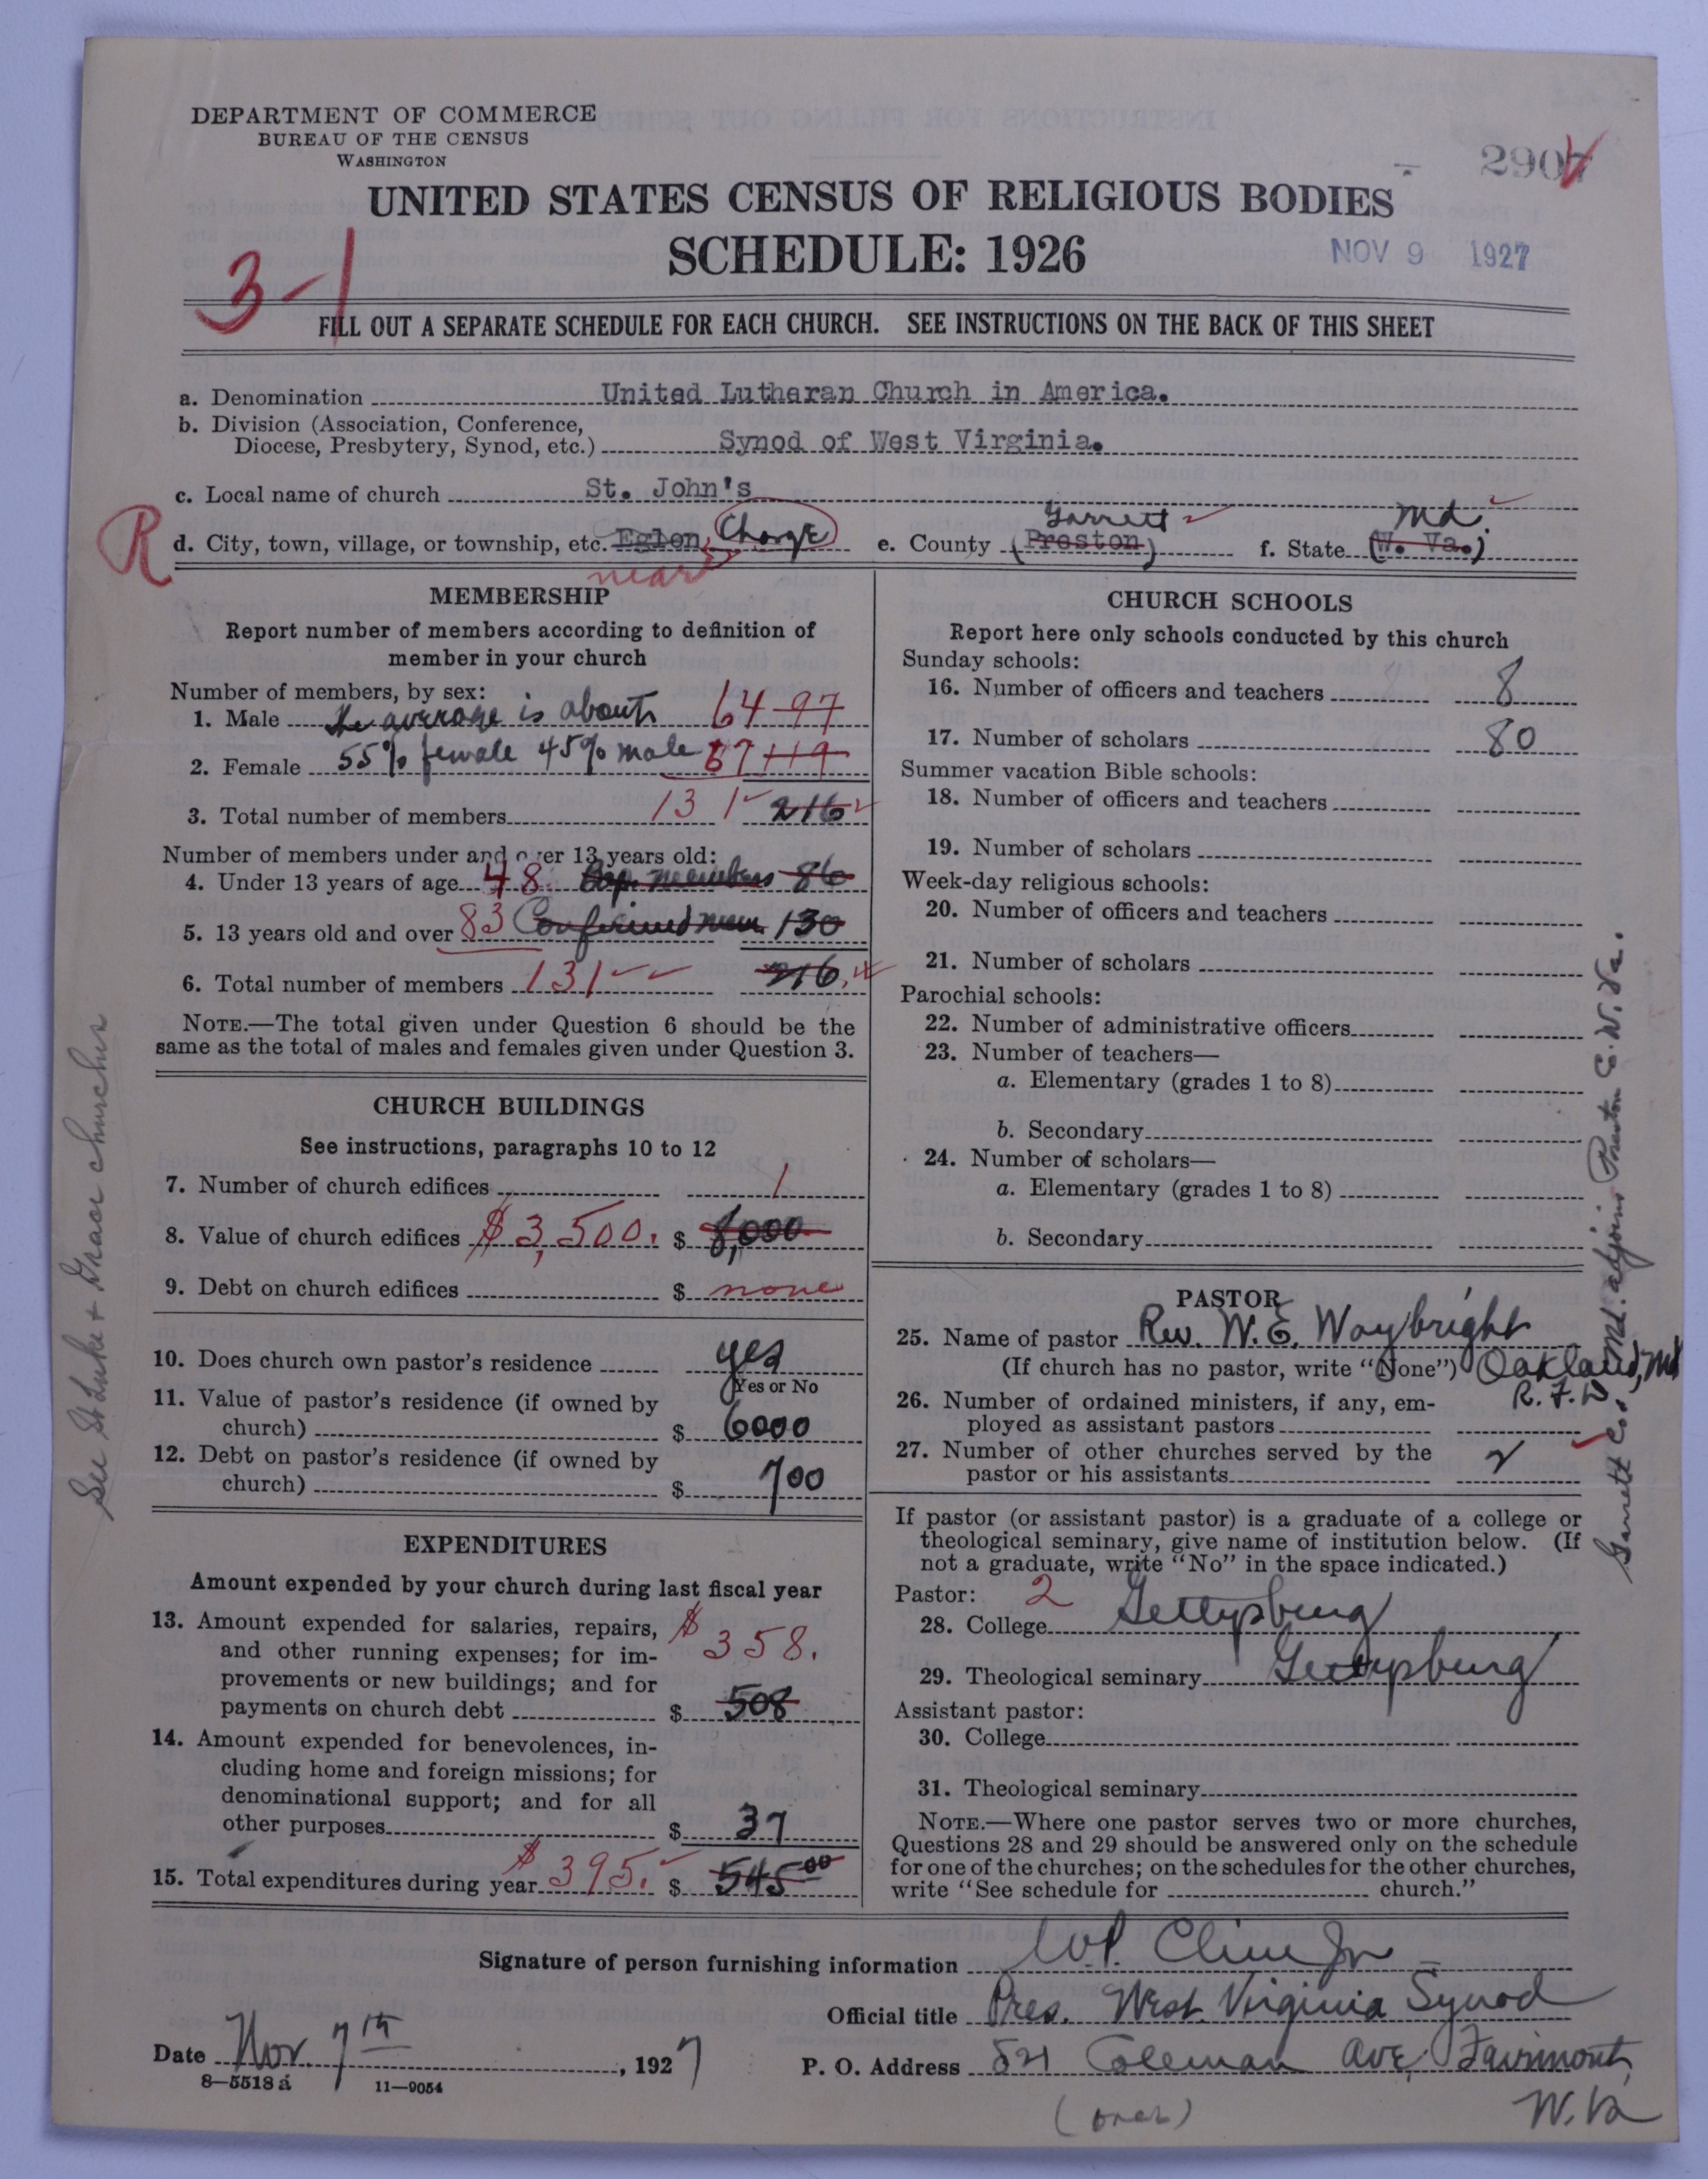 DEPARTMENT OF COMMERCE
BUREAU OF THE CENSUS
WASHINGTON
2907
UNITED STATES CENSUS OF RELIGIOUS BODIES
SCHEDULE: 1926
NOV 9 1927
3-1
FILL OUT A SEPARATE SCHEDULE FOR EACH CHURCH. SEE INSTRUCTIONS ON THE BACK OF THIS SHEET
a. Denomination United Lutheran Church in America.
b. Division (Association, Conference,
Diocese, Presbytery, Synod, etc.) Synod of West Virginia.
c. Local name of church St. John's
Garrett Md.
R d. City, town, village, or township, etc. Eglon, Charge e. County (Preston) f. State (W. Va.)
near
MEMBERSHIP
Report number of members according to definition of
member in your church
Number of members, by sex:
1. Male The average is about 64 97
2. Female 55% female 45% male 67 119
3. Total number of members 131 216
Number of members under and over 13 years old:
4. Under 13 years of age 48 Bap. members 86
5. 13 years old and over 83 Confirmed mem 130
6. Total number of members 131 216
NOTE.—The total given under Question 6 should be the
same as the total of males and females given under Question 3.
CHURCH BUILDINGS
See instructions, paragraphs 10 to 12
7. Number of church edifices 1
8. Value of church edifices $3,500. $ 8,000
9. Debt on church edifices $ none
10. Does church own pastor's residence yes
Yes or No
11. Value of pastor's residence (if owned by
church) $ 6000
12. Debt on pastor's residence (if owned by
church) $ 700
EXPENDITURES
Amount expended by your church during last fiscal year
13. Amount expended for salaries, repairs,
and other running expenses; for im-
provements or new buildings; and for
payments on church debt $ 508
$ 358.
14. Amount expended for benevolences, in-
cluding home and foreign missions; for
denominational support; and for all
other purposes $ 37
15. Total expenditures during year $395. $ 545 00
CHURCH SCHOOLS
Report here only schools conducted by this church
Sunday schools:
16. Number of officers and teachers 8
17. Number of scholars 80
Summer vacation Bible schools:
18. Number of officers and teachers
19. Number of scholars
Week-day religious schools:
20. Number of officers and teachers
21. Number of scholars
Parochial schools:
22. Number of administrative officers
23. Number of teachers—
a. Elementary (grades 1 to 8)
b. Secondary
24. Number of scholars—
a. Elementary (grades 1 to 8)
b. Secondary
PASTOR
25. Name of pastor Rev. W. E. Waybright
(If church has no pastor, write "None") Oakland, Md
R. F. D
26. Number of ordained ministers, if any, em-
ployed as assistant pastors
27. Number of other churches served by the
pastor or his assistants 2
If pastor (or assistant pastor) is a graduate of a college or
theological seminary, give name of institution below. (If
not a graduate, write "No" in the space indicated.)
Pastor: 2
28. College Gettysburg
29. Theological seminary Gettysburg
Assistant pastor:
30. College
31. Theological seminary
NOTE.—Where one pastor serves two or more churches,
Questions 28 and 29 should be answered only on the schedule
for one of the churches; on the schedules for the other churches,
write "See schedule for church."
Signature of person furnishing information W.P. Cline Jr
Official title Pres. West Virginia Synod
Date Nov. 7th, 1927 P. O. Address 521 Coleman Ave, Fairmont,
W. Va
8—5518 a 11—9054
(over)
See St Luke + Grace churches
Garrett Co. Md. adjoins Preston C. W. Va.